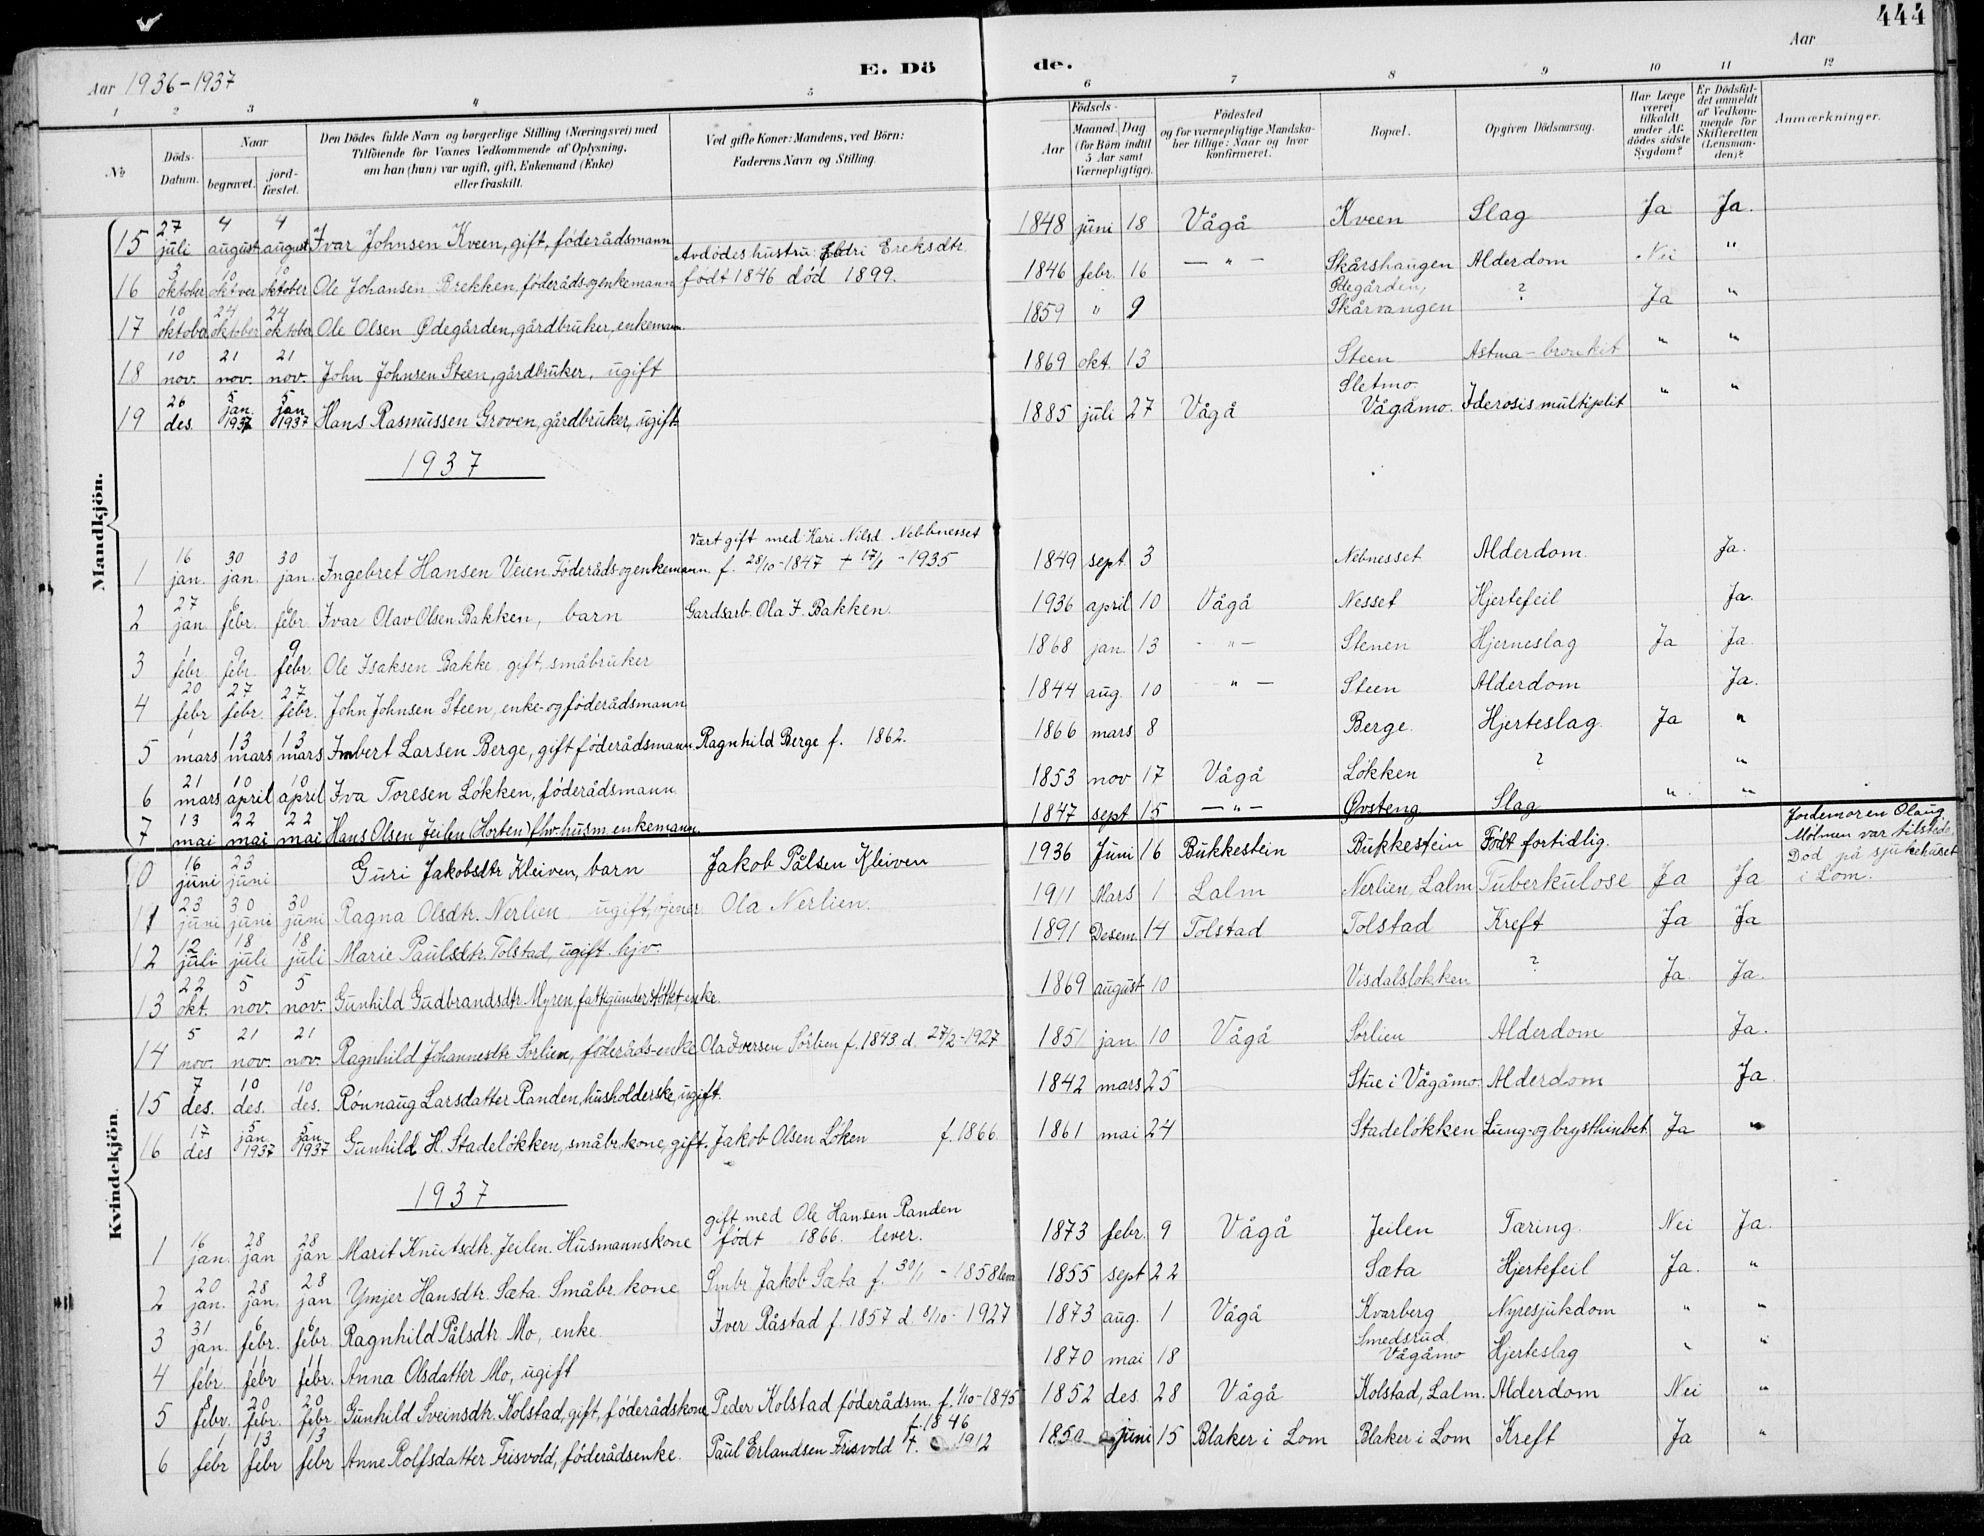 444
Aar 1936-1937
E. Dö de.
Aar
1 2 3 4 5 6 7 8 9 10 11 12
№
Döds-Datum.
Naar
begravet.
jord-fæstet.
Den Dödes fulde Navn og borgerlige Stilling (Næringsvei) med
Tilföiende for Voxnes Vedkommende af Oplysning,
om han (hun) var ugift, gift, Enkemand (Enke)
eller fraskilt.
Ved gifte Koner: Mandens, ved Börn:
Faderens Navn og Stilling.
Födsels-
Aar
Maaned. Dag
(for Börn indtil
5 Aar samt
Værnepligtige).
Födested
og for værnepligtige Mandska-
ber tillige: Naar og hvor
konfirmeret.
Bopæl.
Opgiven Dödsaarsag.
Har Læge
været
tilkaldt
under Af-
dödes sidste
Sygdom?
Er Dödsfal-
det anmeldt
af Vedkom-
mende for
Skifteretten
(Lensman-
den)?
Anmærkninger.
Mandkjön.
15 27 juli 4 august 4 august Ivar Johnsen Kveen, gift, föderådsmann 1848 juni 18 Vågå Kveen Slag Ja Ja.
16 3 oktober 10 oktober 10 oktober Ole Johansen Brekken, föderåds og enkemann Avdödes hustru: Eldri Ereksdtr. född 1846 död 1899. 1846 febr. 16 — " — Skårshaugen Alderdom Nei "
17 10 oktober 24 oktober 24 oktober Ole Olsen Ødegården, gårdbruker, enkemann. 1859 " 9 Ødegården, Skårvangen ? Ja "
18 10 nov. 21 nov. 21 nov. John Johnsen Steen, gårdbruker, ugift 1869 okt. 13 Steen Astma-bronkit " "
19 26 des. 5 jan. 1937 5 jan 1937 Hans Rasmussen Groven, gårdbruker, ugift. 1885 juli 27 Vågå Sletmo. Vågåmo. Iderosis multiplit " "
1937
1 16 jan. 30 jan. 30 jan. Ingebret Hansen Veien Föderåds og enkemann Vært gift med Kari Nilsd. Nebbnesset f. 28/10-1847 + 17/1 -1935 1849 sept. 3 Nebnesset Alderdom. Ja.
2 27 jan. 6 febr. 6 febr. Ivar Olav Olsen Bakken, barn Gardsarb. Ola I. Bakken. 1936 april 10 Vågå Nesset Hjertefeil Ja.
3 1 febr. 9 febr. 9 febr. Ole Isaksen Bakke gift, småbruker 1868 jan. 13 - " - Stenen Hjerneslag Ja Ja.
4 20 febr 27 febr. 27 febr. John Johnsen Steen, enke- og föderådsmann 1844 aug. 10 " — Steen Alderdom Ja.
5 1 mars 13 mars 13 mars Imbert Larsen Berge, gift föderådsmann. Ragnhild Berge f. 1862. 1866 mars 8 Berge. Hjerteslag. Ja "
6 21 mars 10 april 10 april Iva Toresen Lökken, föderådsmann. 1853 nov 17 Vågå Lökken ? "
7 13 mai 22 mai 22 mai Hans Olsen Jeilen (Horten) fhv. husm. enkemann. 1847 sept 15 — " — Øvsteng Slag " "
Kvindekjön.
0 16 juni 23 juni Guri Jakobsdtr Kleiven, barn Jakob Pålsen Kleiven 1936 Juni 16 Bukkestein Bukkestein Født fortidlig. Jordemoren Olaug Mölmen var tilstede.
11 23 juni 30 juni 30 juni Ragna Olsdtr. Nerlien ugift, Ola Nerlien. 1911 Mars 1 Lalm Nerlien, Lalm Tuberkulose Ja Ja Död på sjukehuset i Lom.
12 12 juli 18 juli 18 juli Marie Paulsdtr. Tolstad, ugift. hjv. 1891 Desem. 14 Tolstad Tolstad Kreft Ja Ja
13 22 okt. 5 nov. 5 nov. Gunhild Gudbrandsdtr Myren, fattigunderstöttet, enke. 1869 august 10 Visdalslökken ? Ja. Ja.
14 5 nov. 21 nov. 21 nov. Ragnhild Johannesdtr Sörlien, föderåds-enke Ola Iversen Sörlien f. 1843 d. 27/2-1927 1851 jan. 10 Vågå Sörlien Alderdom Ja.
15 7 des. 10 des. 10 des. Rönnaug Larsdatter Randen, husholderske, ugift. 1842 mars 25 Stue i Vågåmo. Alderdom Ja.
16 17 des 5 jan. 1937 5 jan 1937 Gunhild H. Stadelökken, småbr. kone, gift. Jakob Olsen Löken f. 1866. 1861 mai 24 Stadelökken Lung- og brysthinbet. Ja "
1937
1 16 jan. 28 jan 28 jan Marit Knutsdtr. Jeilen. Husmannskone gift med Ole Hansen Randen född 1866. lever. 1873 febr. 9 Vågå Jeilen Tæring. Nei Ja.
2 20 jan. 28 jan. 28 jan Ymjer Hansdtr. Sæta. Småbr. kone Smbr Jakob Sæta f. 30/1 - 1858 lever 1855 sept 22 Sæta Hjertefeil Ja. "
3 31 jan. 6 febr. 6 febr. Ragnhild Pålsdtr Mo, enke. Iver Råstad f. 1857 d. 8/10-1927 1873 aug. 1 Vågå Kvarberg Nyresjukdom " "
4 1 febr. 11 febr 11 febr. Anna Olsdatter Mo, ugift 1870 mai 18 Smedsrud, Vågåmo Hjerteslag " "
5 8 febr. 20 febr. 20 febr. Gunhild Sveinsdtr. Kolstad, gift, föderådskone Peder Kolstad föderådsm. f. 1/10-1845 1852 des. 28 Vågå Kolstad, Lalm. Alderdom Nei "
6 1 febr 13 febr 13 febr Anne Rolfsdatter Frisvold, föderådsenke. Paul Erlandsen Frisvold f. 1846 †. 1912 1850 juni 15 Blaker i Lom Blaker i Lom Kreft Ja "